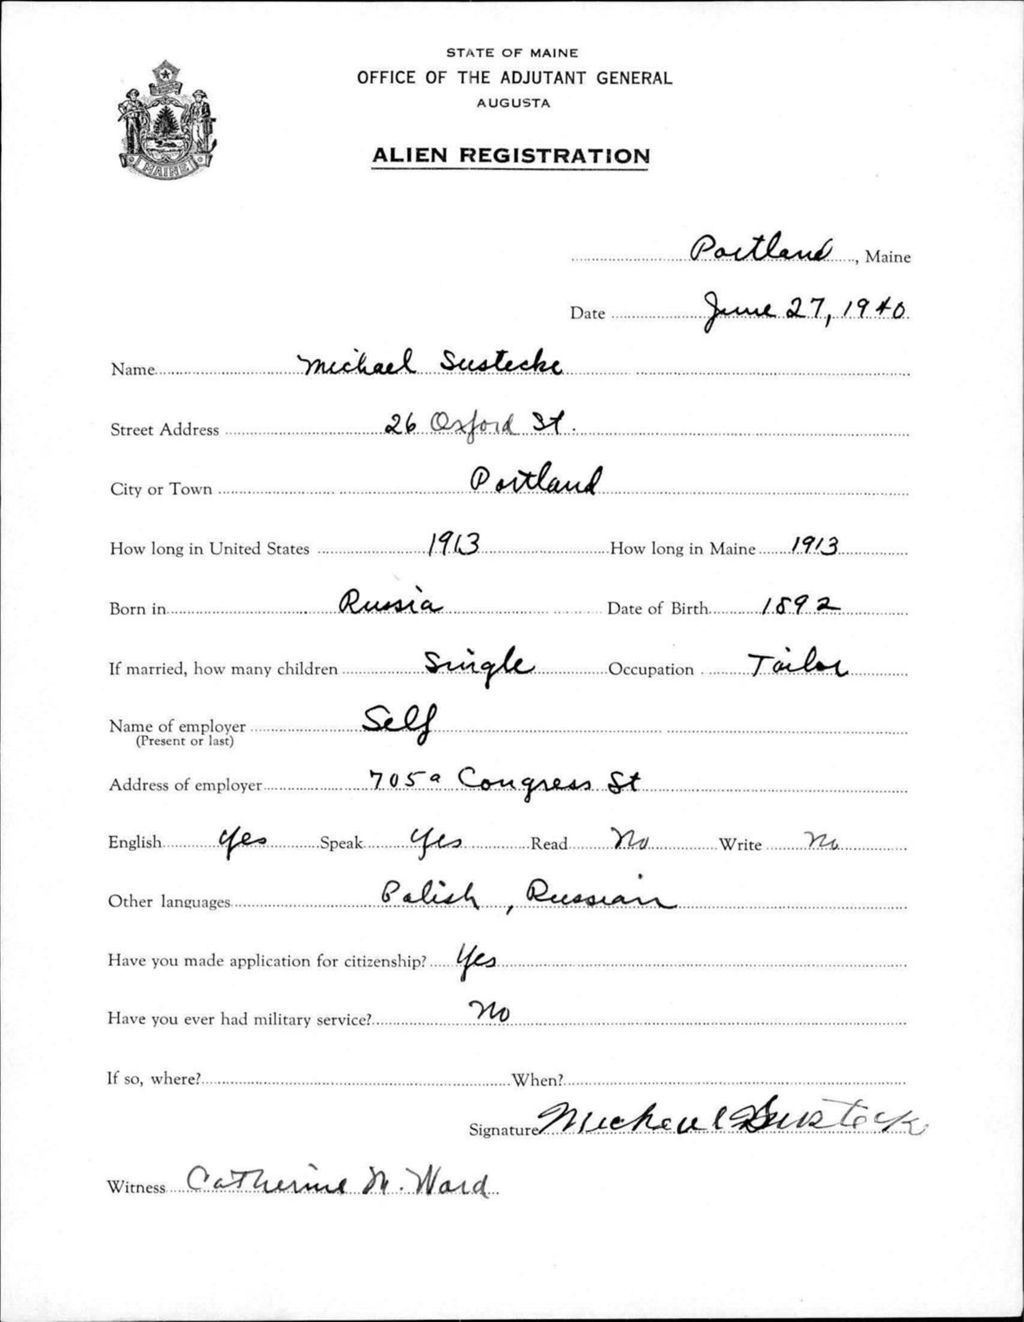 STATE OF MAINE
OFFICE OF THE ADJUTANT GENERAL
AUGUSTA
ALIEN REGISTRATION
MAINE
Portland, Maine
Date June 27, 1940
Name Michael Sustecke
Street Address 26 Oxford St.
City or Town Portland
How long in United States 1913 How long in Maine 1913
Born in Russia Date of Birth 1892
If married, how many children Single Occupation Tailor
Name of employer Self
(Present or last)
Address of employer 705a Congress St
English Yes Speak Yes Read No Write No
Other languages Polish, Russian
Have you made application for citizenship? Yes
Have you ever had military service? No
If so, where? When?
Signature
Witness Catherine M. Ward